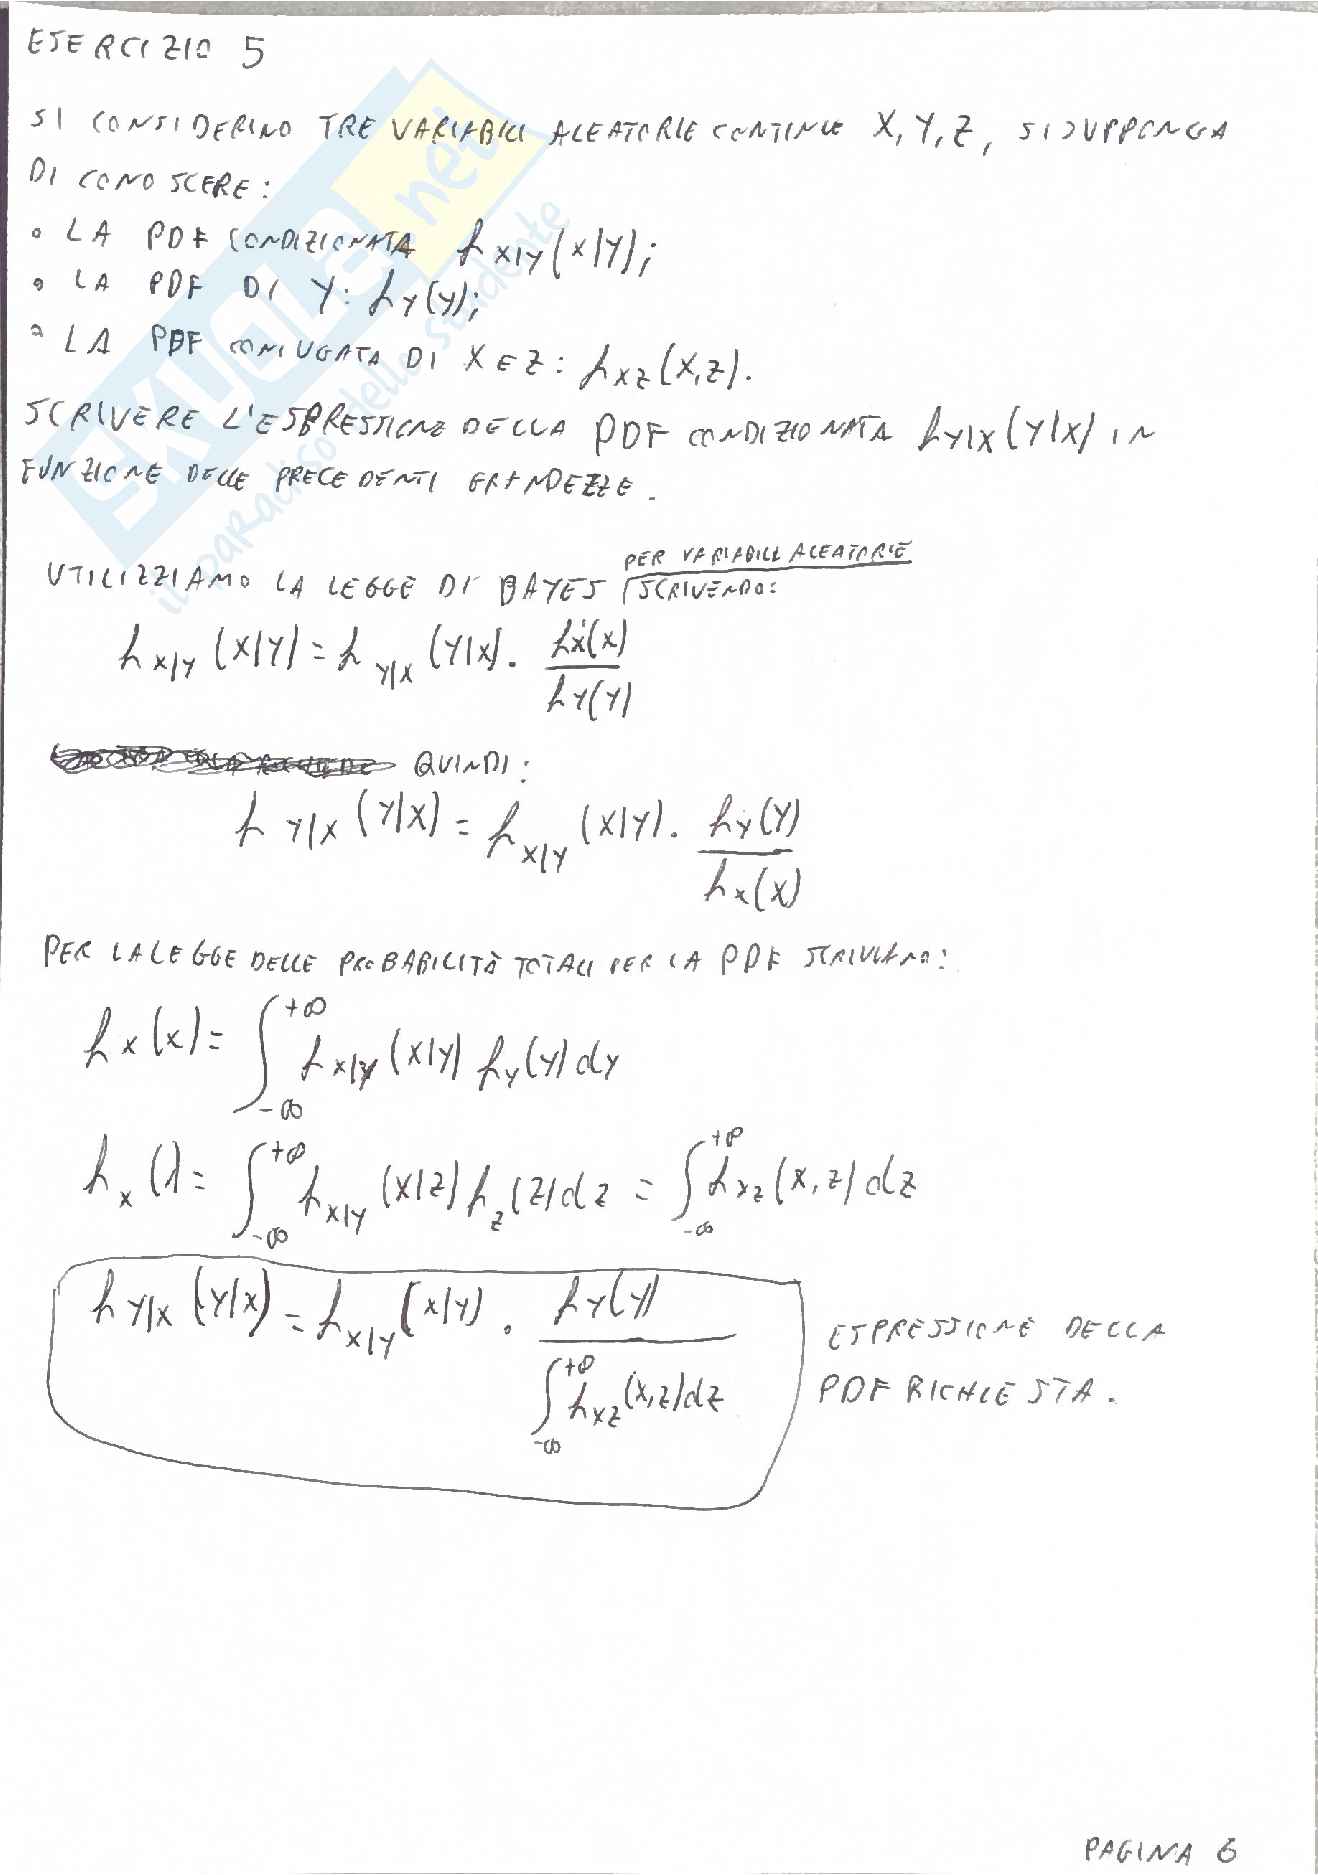 ESERCIZIO 5
SI CONSIDERINO TRE VARIABILI ALEATORIE CONTINUE X, Y, Z, SI SUPPONGA
DI CONOSCERE:
• LA PDF CONDIZIONATA f_{X|Y}(x|y);
• LA PDF DI Y: f_Y(y);
• LA PDF CONIUGATA DI X E Z: f_{XZ}(x,z).
SCRIVERE L'ESPRESSIONE DELLA PDF CONDIZIONATA f_{Y|X}(y|x) IN
FUNZIONE DELLE PRECEDENTI GRANDEZZE.
PER VARIABILI ALEATORIE
UTILIZZIAMO LA LEGGE DI BAYES SCRIVENDO:
f_{X|Y}(x|y) = f_{Y|X}(y|x) · f_X(x) / f_Y(y)
QUINDI:
f_{Y|X}(y|x) = f_{X|Y}(x|y) · f_Y(y) / f_X(x)
PER LA LEGGE DELLE PROBABILITÀ TOTALI PER LA PDF SCRIVIAMO:
f_X(x) = ∫_{-∞}^{+∞} f_{X|Y}(x|y) f_Y(y) dy
f_X( ) = ∫_{-∞}^{+∞} f_{X|Y}(x|z) f_Z(z) dz = ∫_{-∞}^{+∞} f_{XZ}(x,z) dz
f_{Y|X}(y|x) = f_{X|Y}(x|y) · f_Y(y) / ∫_{-∞}^{+∞} f_{XZ}(x,z) dz
ESPRESSIONE DELLA
PDF RICHIESTA.
PAGINA 6
SKUOLA.net
il paradiso dello studente